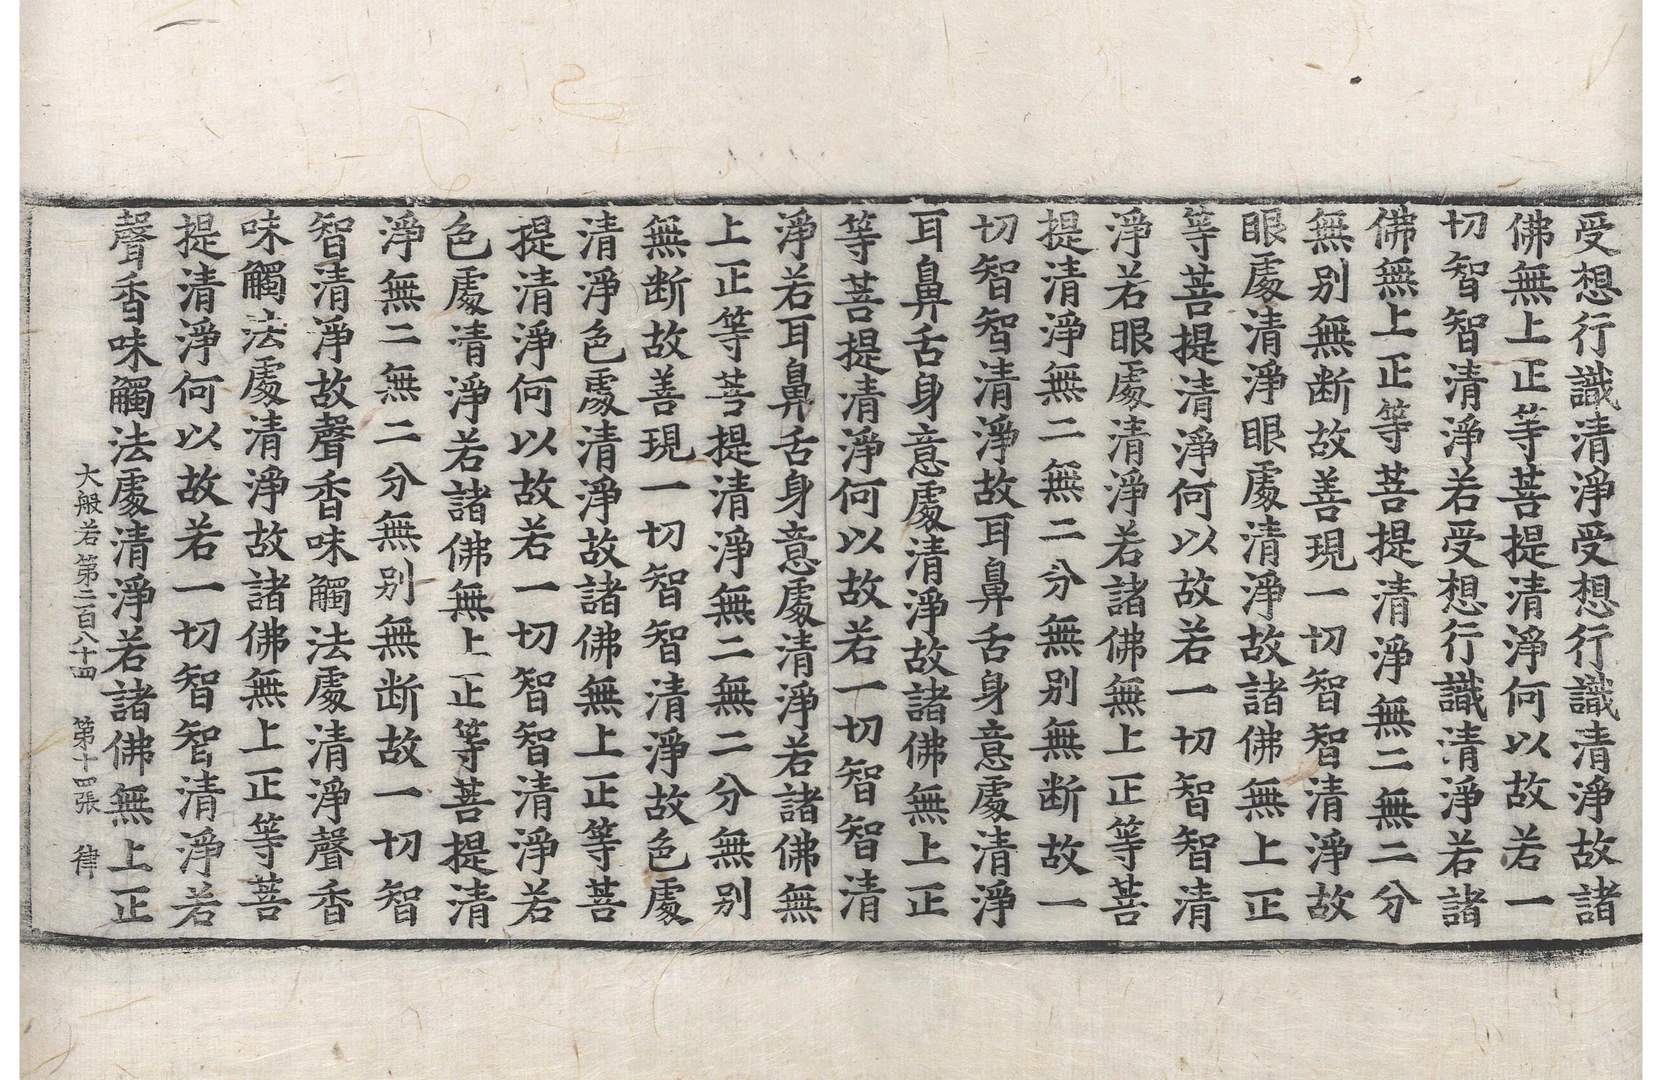 受想行識清淨受想行識清淨故諸
佛無上正等菩提清淨何以故若一
切智智清淨若受想行識清淨若諸
佛無上正等菩提清淨無二無二分
無别無断故善現一切智智清淨故
眼處清淨眼處清淨故諸佛無上正
等菩提清淨何以故若一切智智清
淨若眼處清淨若諸佛無上正等菩
提清淨無二無二分無别無断故一
切智智清淨故耳鼻舌身意處清淨
耳鼻舌身意處清淨故諸佛無上正
等菩提清淨何以故若一切智智清
淨若耳鼻舌身意處清淨若諸佛無
上正等菩提清淨無二無二分無别
無断故善現一切智智清淨故色處
清淨色處清淨故諸佛無上正等菩
提清淨何以故若一切智智清淨若
色處清淨若諸佛無上正等菩提清
淨無二無二分無别無断故一切智
智清淨故聲香味觸法處清淨聲香
味觸法處清淨故諸佛無上正等菩
提清淨何以故若一切智智清淨若
聲香味觸法處清淨若諸佛無上正
大般若第二百八十四 第十四張 律